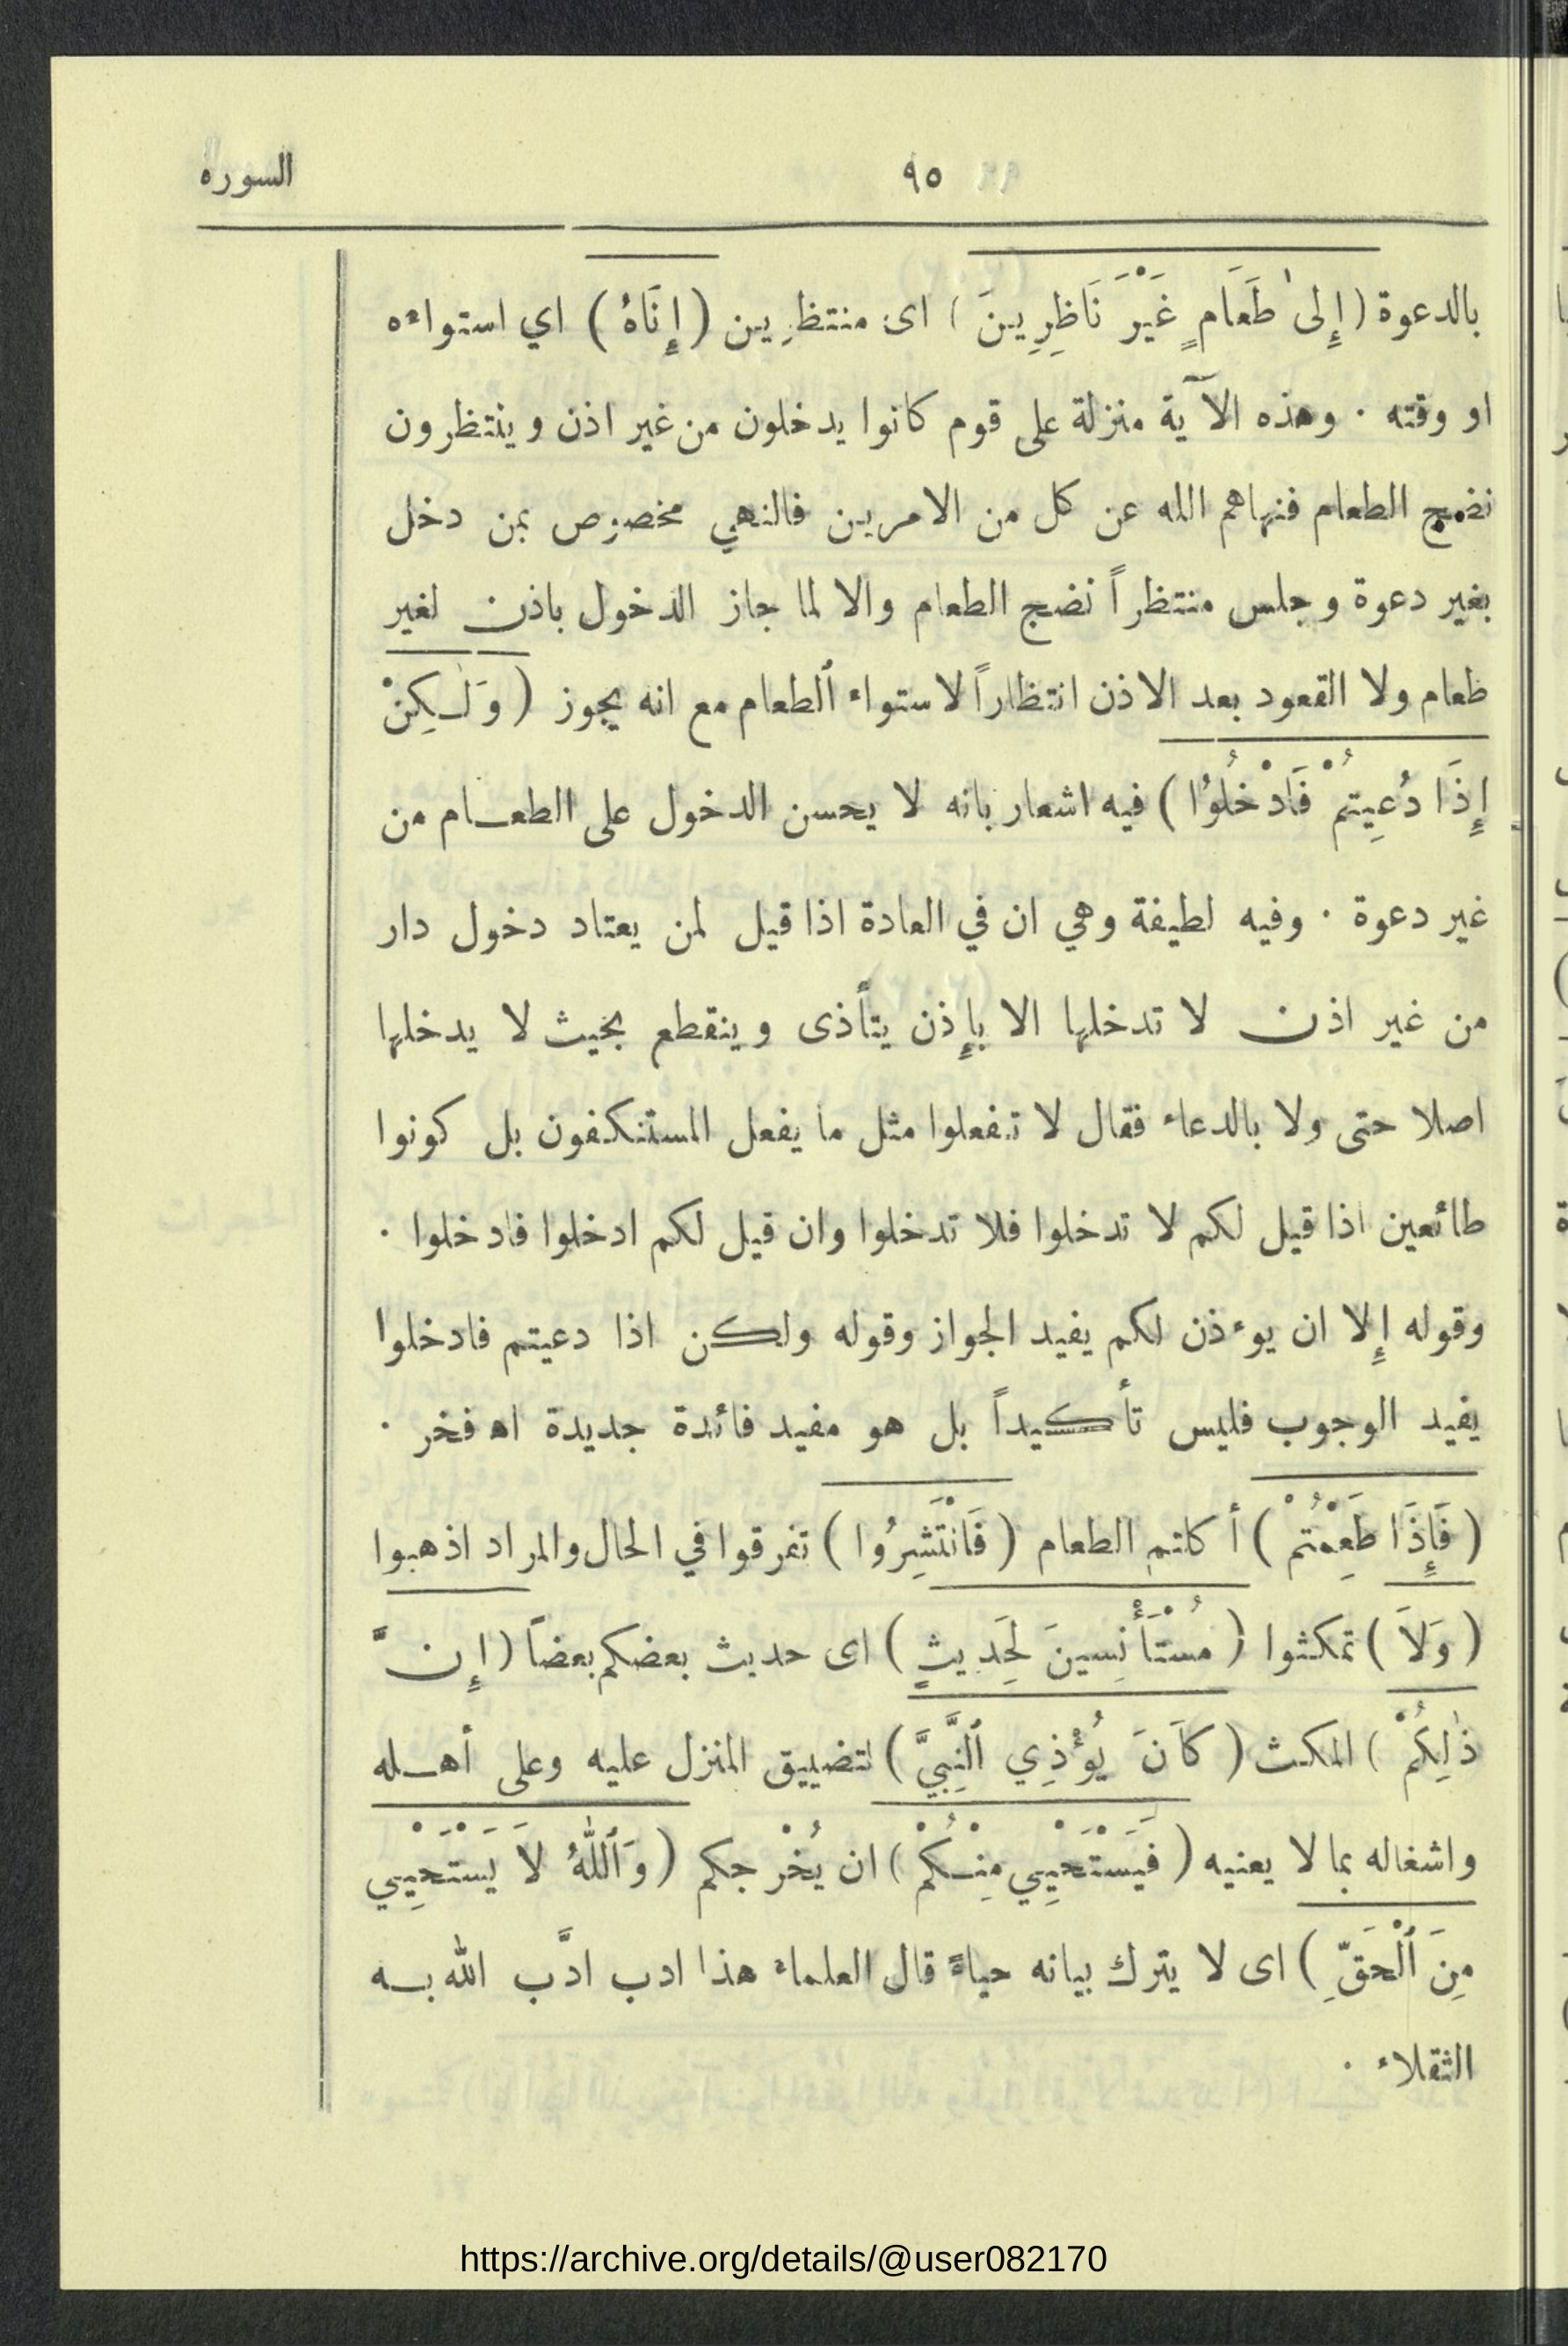 ٩٥ السورة
بالدعوة (إِلىٰ طَعَامٍ غَيْرَ نَاظِرِينَ) اى منتظرِين (إِنَاهُ) اي استواءه
او وقته · وهذه الآية منزلة على قوم كانوا يدخلون من غير اذن وينتظرون
نضج الطعام فنهاهم الله عن كل من الامرين فالنهي مخصوص بمن دخل
بغير دعوة وجلس منتظراً نضج الطعام والا لما جاز الدخول باذن لغير
طعام ولا القعود بعد الاذن انتظاراً لاستواء ٱلطعام مع انه يجوز (وَلٰكِنْ
إِذَا دُعِيتُمْ فَادْخُلُوُا) فيه اشعار بانه لا يحسن الدخول على الطعــام من
غير دعوة · وفيه لطيفة وهي ان في العادة اذا قيل لمن يعتاد دخول دار
من غير اذن لا تدخلها الا بإِذن يتأذى وينقطع بخيث لا يدخلها
اصلا حتى ولا بالدعاء فقال لا تفعلوا مثل ما يفعل المستنكفون بل كونوا
طائعين اذا قيل لكم لا تدخلوا فلا تدخلوا وان قيل لكم ادخلوا فادخلوا ·
وقوله إِلا ان يوءذن لكم يفيد الجواز وقوله ولكن اذا دعيتم فادخلوا
يفيد الوجوب فليس تأكيداً بل هو مفيد فائدة جديدة اه فخر ·
(فَإِذَا طَعِمْتُمْ) أكلتم الطعام (فَانْتَشِرُوا) تفرقوا في الحال والمراد اذهبوا
(وَلاَ) تمكثوا (مُسْتَأْنِسِينَ لِحَدِيثٍ) اى حديث بعضكم بعضاً (إِنَّ
ذٰلِكُمْ) المكث (كَانَ يُؤْذِي ٱلنَّبِيَّ) لتضييق المنزل عليه وعلى أهــله
واشغاله بما لا يعنيه (فَيَسْتَحْيِي مِنْكُمْ) ان يُخْرجكم (وَٱللّٰهُ لاَ يَسْتَحْيِي
مِنَ ٱلْحَقِّ) اى لا يترك بيانه حياءً قال العلماء هذا ادب ادَّب الله بــه
الثقلاء ·
https://archive.org/details/@user082170